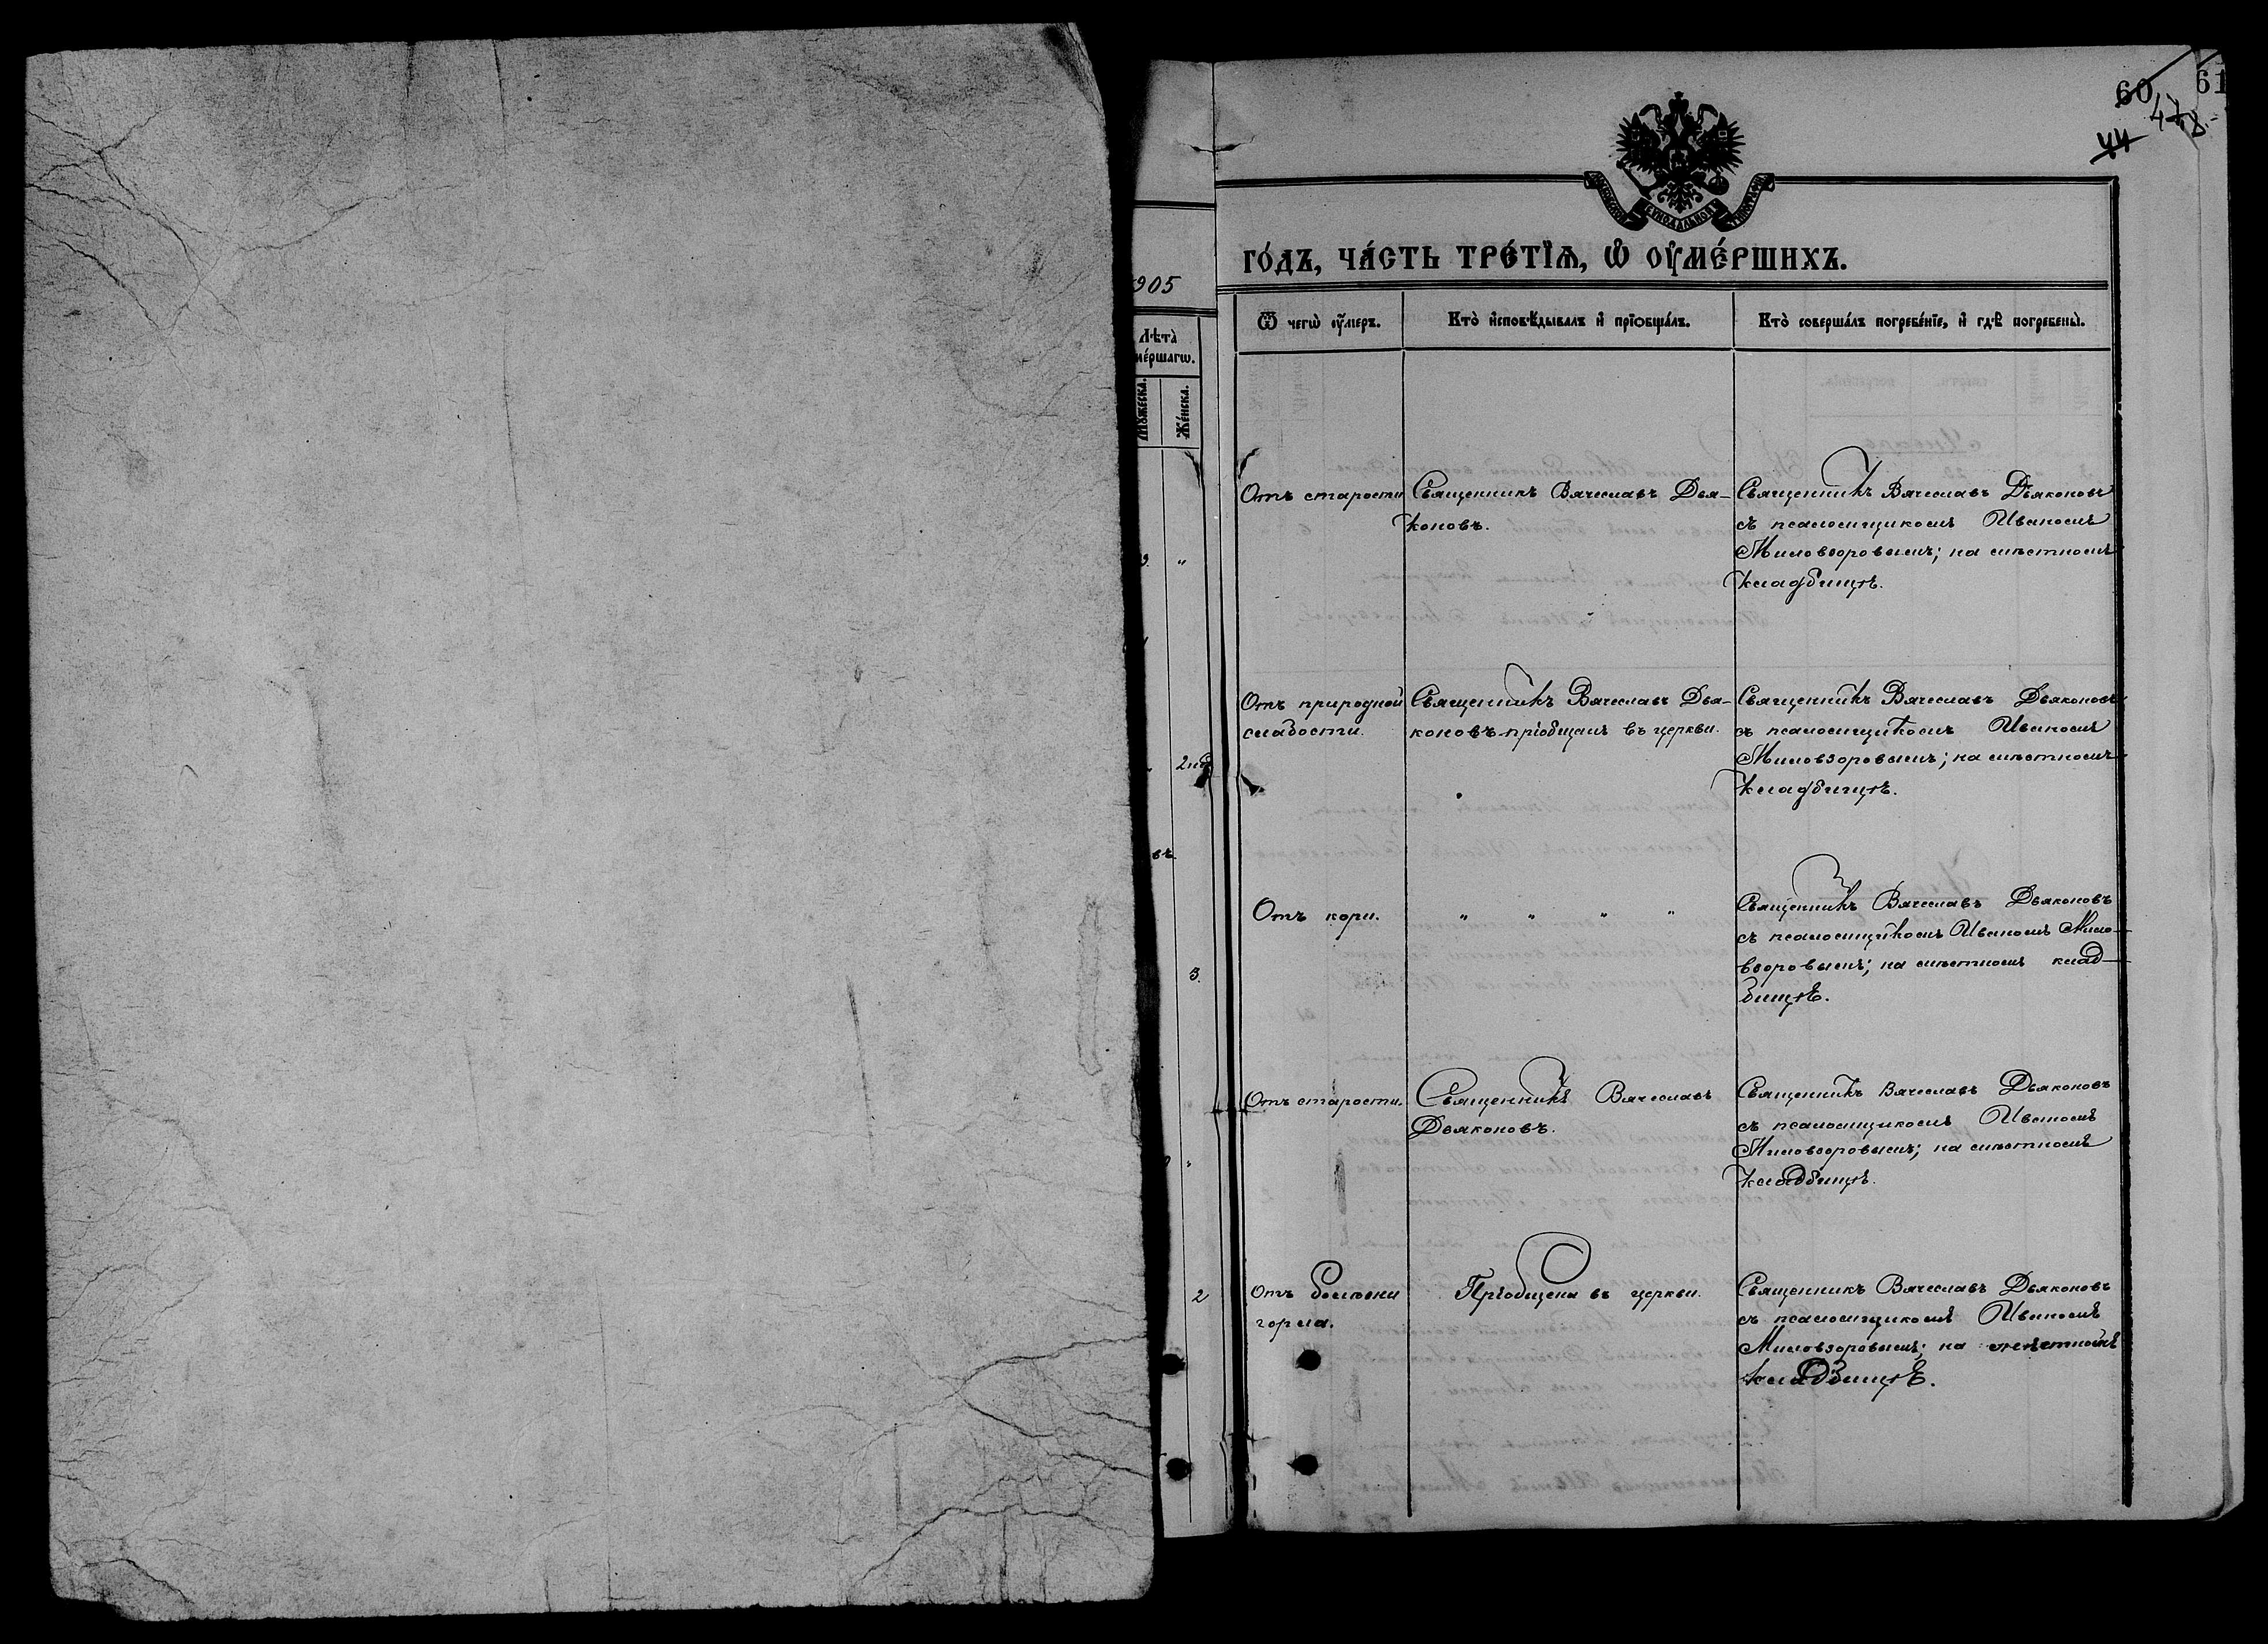 60 61
47 8.
44
905
ГО́ДЪ, ЧА́СТЬ ТРЕ́ТЇѦ, Ѽ ОУ҆МЕ́РШИХЪ.
Лѣта̀
ме́ршагѡ.
Мꙋ́жеска.
Же́нска.
Ѿ чегѡ̀ оу҆́меръ.
Кто̀ и҆сповѣ́дывалъ и҆ прїѡбща́лъ.
Кто̀ соверша́лъ погребе́нїе, и҆ гдѣ̀ погребены̀.
Отъ старости
Священникъ Вячеславъ Дья-
коновъ.
Священникъ Вячеславъ Дьяконовъ
съ псаломщикомъ Иваномъ
Миловзоровымъ; на мѣстномъ
кладбищѣ.
"
Отъ природной
слабости.
Священникъ Вячеславъ Дья-
коновъ пріобщалъ въ церкви.
Священникъ Вячеславъ Дьяконовъ
съ псаломщикомъ Иваномъ
Миловзоровымъ; на мѣстномъ
кладбищѣ.
2 нед
въ.
Отъ кори.
" " " "
Священникъ Вячеславъ Дьяконовъ
съ псаломщикомъ Иваномъ Мило-
взоровымъ; на мѣстномъ клад-
бищѣ.
3.
Отъ старости.
Священникъ Вячеславъ
Дьяконовъ.
Священникъ Вячеславъ Дьяконовъ
съ псаломщикомъ Иваномъ
Миловзоровымъ; на мѣстномъ
кладбищѣ.
"
2
Отъ болѣзни
горла.
Пріобщена въ церкви.
Священникъ Вячеславъ Дьяконовъ
съ псаломщикомъ Иваномъ
Миловзоровымъ; на мѣстномъ
кладбищѣ.